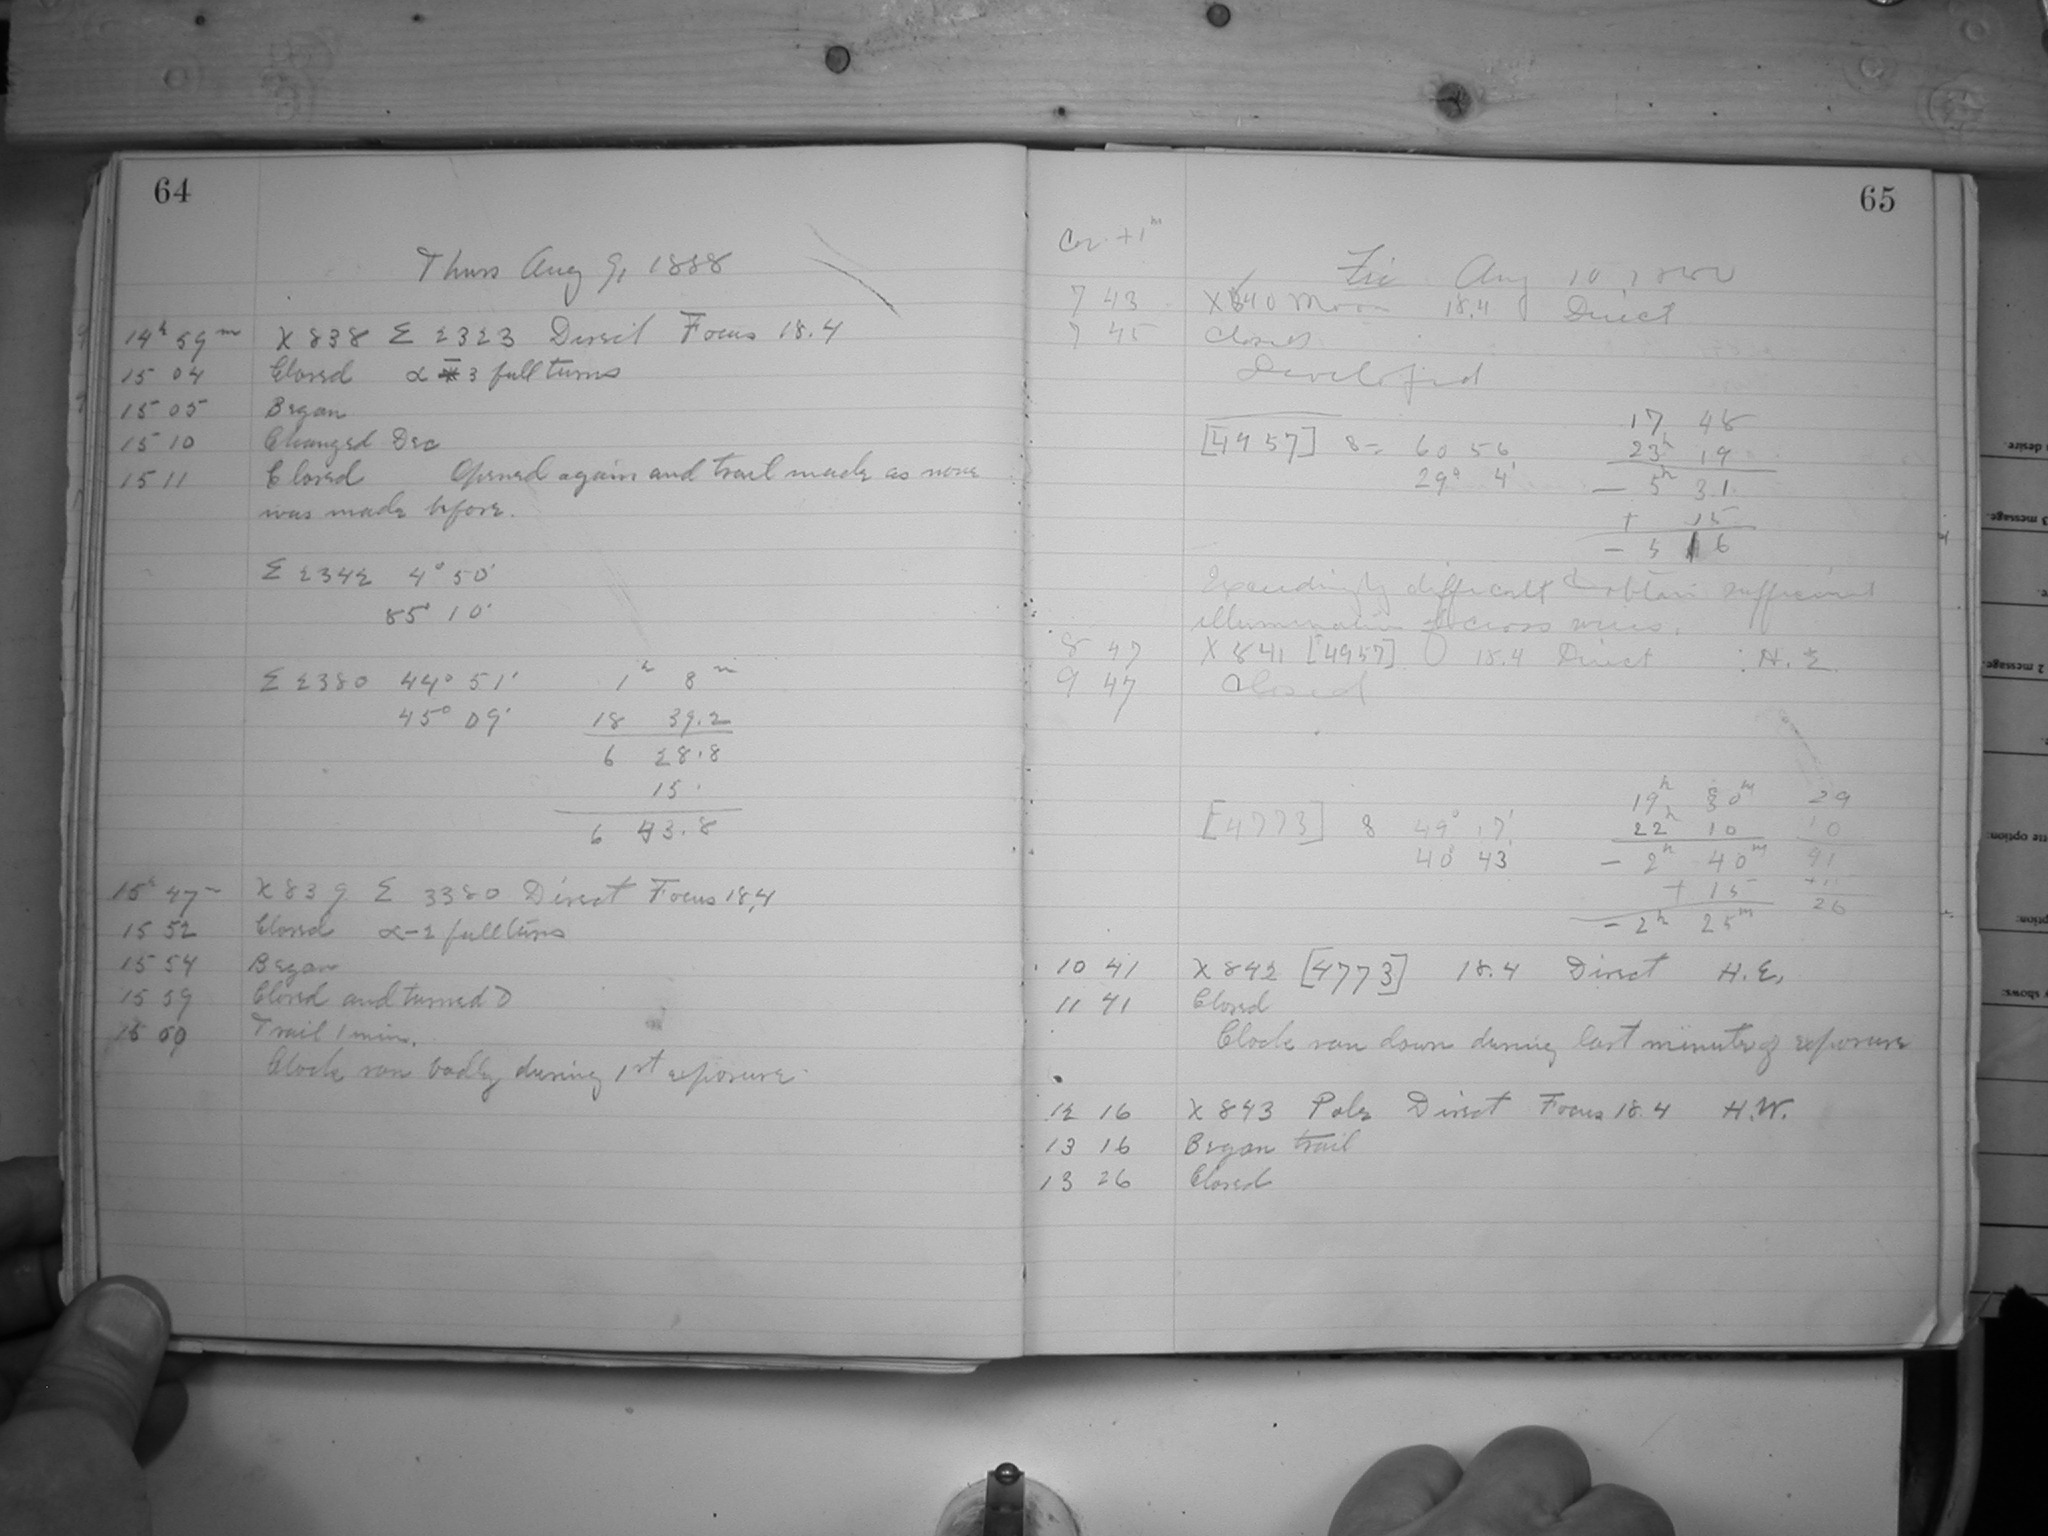 64
Thurs Aug 9, 1888
14h 59m X 838 Σ 2323 Direct Focus 18.4
15 04 Closed α - 3 full turns
15 05 Began
15 10 Changed Dec
15 11 Closed Opened again and trail made as none
was made before.
Σ 2342 4° 50'
85° 10'
Σ 2380 44° 51' 1h 8m
45° 09' 18 39.2
6 28.8
15.
6 43.8
15h 47m X 839 Σ 3380 Direct Focus 18.4
15 52 Closed α - 2 full turns
15 54 Began
15 59 Closed and turned
Trail 1 min.
Clock ran badly during 1st exposure.
65
Cor. +1m
Fri Aug 10, 1888
7 43 X 840 Moon 18.4 Direct
7 45 Closed
Developed
17 48
[4957] 8 = 60 56 23h 19
29° 4' - 5h 31
+ 15
- 5 16
Exceedingly difficult to obtain sufficient
illumination to cross wires.
8 47 X 841 [4957] 18.4 Direct H.E.
9 47 Closed
19h 30m 29
[4773] 8 49° 17' 22h 10 10
40° 43' - 2h 40m 91
+ 15
- 2h 25m 26
10 41 X 842 [4773] 18.4 Direct H.E.
11 41 Closed
Clock ran down during last minute of exposure
12 16 X 843 Pole Direct Focus 18.4 H.W.
13 16 Began trail
13 26 Closed
desire.
3 message.
2 message.
option:
ption:
shows: